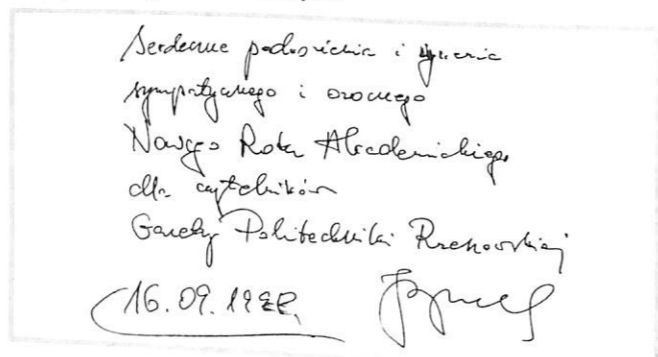 Serdeczne pozdrowienia i życzenia
sympatycznego i owocnego
Nowego Roku Akademickiego
dla czytelników
Gazety Politechniki Rzeszowskiej
16.09.